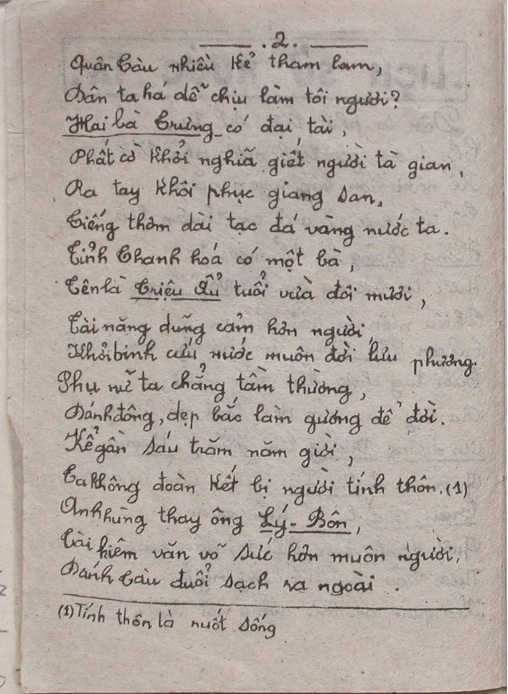 2.
Quân Càu nhiều kẻ tham lam,
Dân ta há dễ chịu làm tôi người?
Hai bà Trưng có đại tài,
Phất cờ khởi nghĩa giết người tà gian,
Ra tay khôi phục giang san,
Tiếng thơm dài tạc đá vàng nước ta.
Tỉnh Thanh hoá có một bà,
Tên là Triệu Ẩu tuổi vừa đôi mươi,
Tài năng dũng cảm hơn người
Khởi binh cứu nước muôn đời lưu phương.
Phụ nữ ta chẳng tầm thường,
Đánh đông, dẹp bắc làm gương để đời.
Kể gần sáu trăm năm giời,
Ta không đoàn kết bị người tính thôn. (1)
Anh hùng thay ông Lý-Bôn,
Tài kiêm văn võ sức hơn muôn người,
Đánh Tàu đuổi sạch ra ngoài.
(1) Tính thôn là nuốt sống